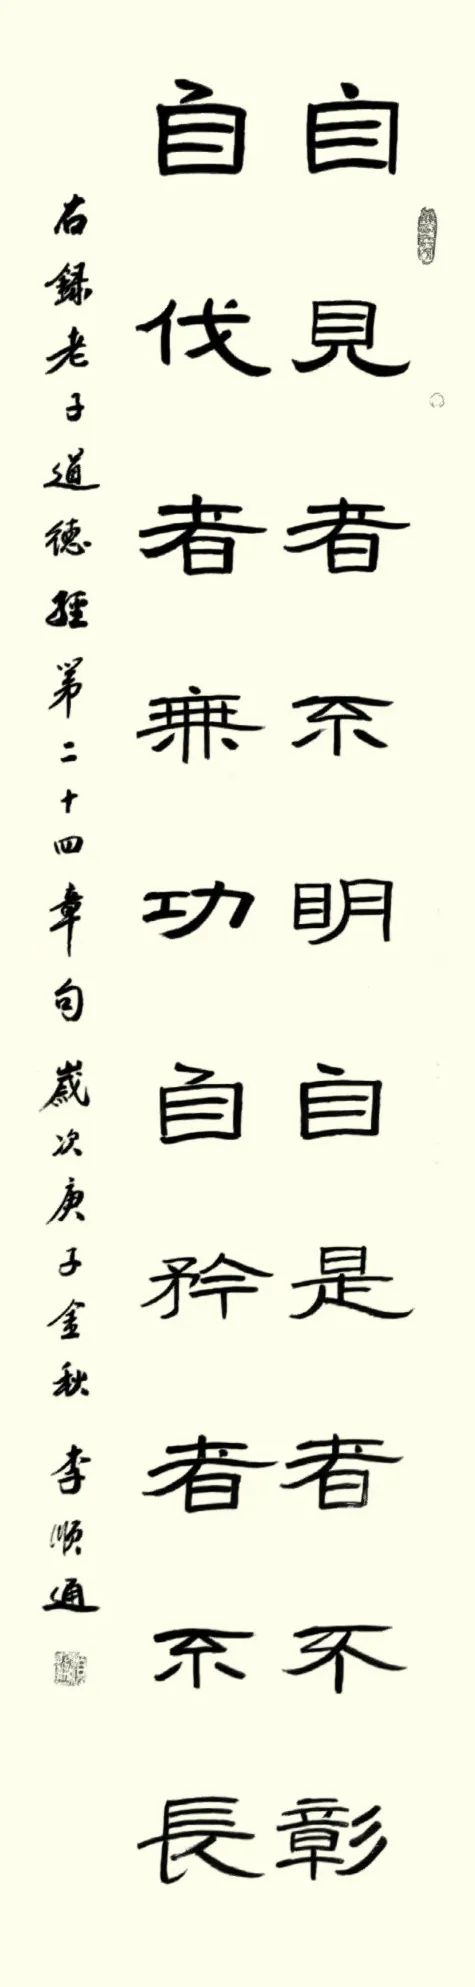 自見者不明自是者不彰
自伐者無功自矜者不長
右録老子道德經第二十四章句 歲次庚子金秋 李順通